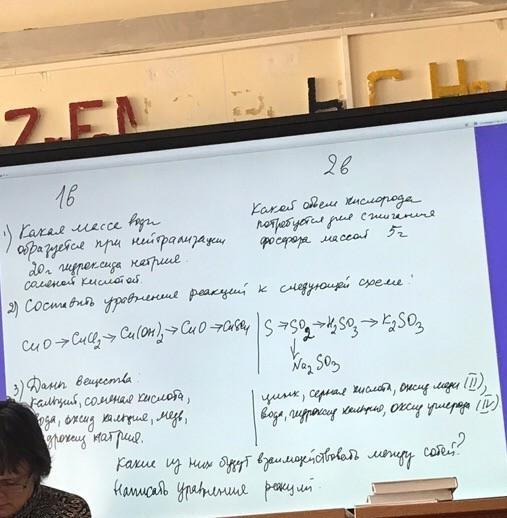 1в
1) Какая масса воды
образуется при нейтрализации
20г гидроксида натрия
соляной кислотой.
2в
Какой объем кислорода
потребуется для сжигания
фосфора массой 5г
2) Составить уравнения реакций к следующей схеме:
CuO → CuCl₂ → Cu(OH)₂ → CuO → CuSO₄
S → SO₂ → H₂SO₃ → K₂SO₃
↓
Na₂SO₃
3) Даны вещества:
кальций, соляная кислота,
вода, оксид кальция, медь,
гидроксид натрия.
цинк, серная кислота, оксид меди (II),
вода, гидроксид кальция, оксид углерода (IV)
Какие из них будут взаимодействовать между собой?
Написать уравнения реакций.